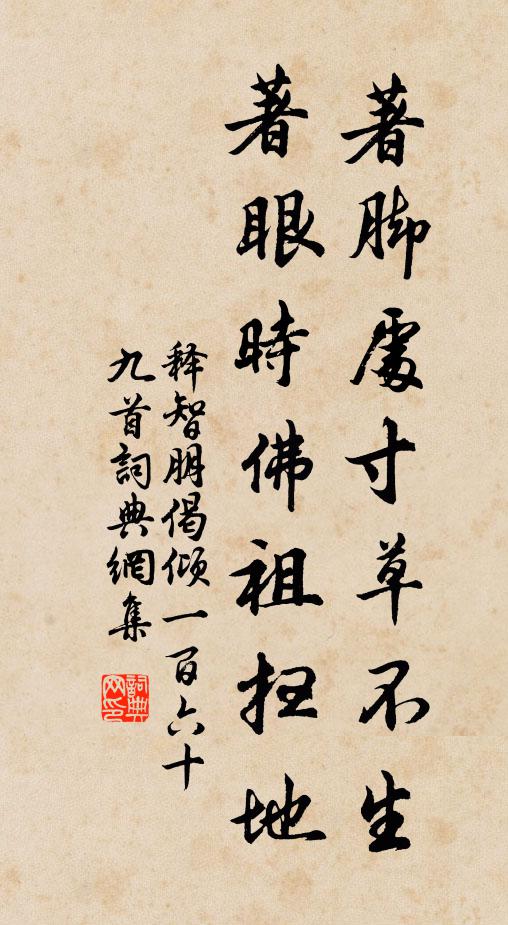 著脚處寸草不生
著眼時佛祖扫地
释智朋偈倾一百六十
九首詞典網集
詞典网印